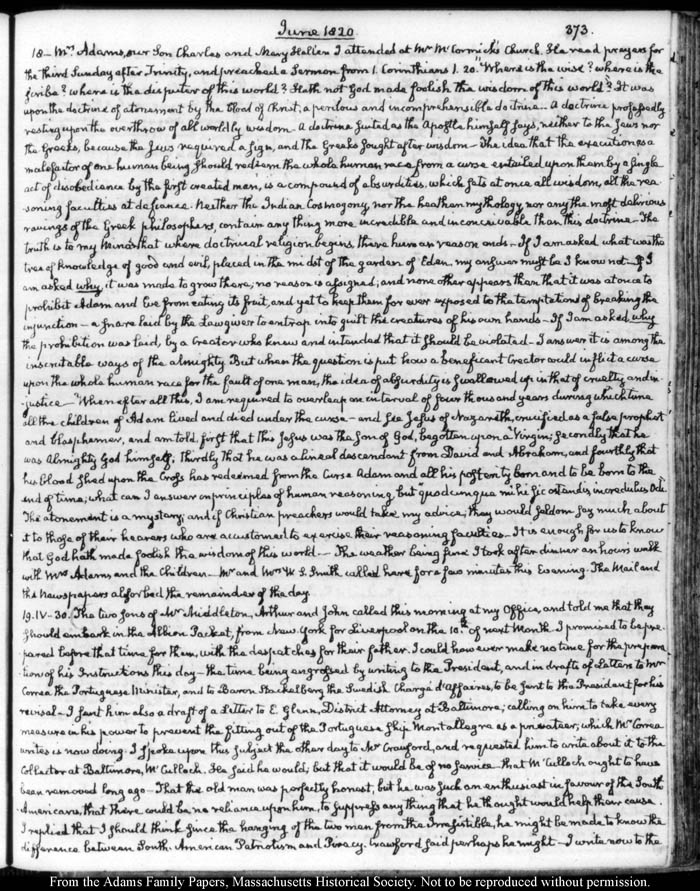 June 1820.
373.
18— Mrs Adams, our Son Charles and Mary Hellen I attended at Mr McCormick's Church. He read prayers for
the third Sunday after Trinity, and preached a Sermon from 1. Corinthians 1. 20. "Where is the wise? where is the
scribe? where is the disputer of this world? Hath not God made foolish the wisdom of this world?" It was
upon the doctrine of atonement by the blood of Christ, a perilous and incomprehensible doctrine— A doctrine professedly
resting upon the overthrow of all worldly wisdom. A doctrine suited as the Apostle himself says, neither to the Jews nor
the Greeks, because the Jews required a sign, and the Greeks sought after wisdom— The idea that the execution as a
malefactor of one human being should redeem the whole human race from a curse entailed upon them by a single
act of disobedience by the first created man, is a compound of absurdities, which sets at once all wisdom, all the rea-
soning faculties at defiance. Neither the Indian Cosmogony, nor the heathen mythology, nor any the most delirious
ravings of the Greek philosophers, contain any thing more incredible and inconceivable than this doctrine— The
truth is to my mind that where doctrinal religion begins, there human reason ends— If I am asked what was the
tree of knowledge of good and evil, placed in the midst of the garden of Eden, my answer must be I know not— If I
am asked why, it was made to grow there, no reason is assigned, and none other appears than that it was at once to
prohibit Adam and Eve from eating its fruit, and yet to keep them for ever exposed to the temptation of breaking the
injunction— a snare laid by the Lawgiver to entrap into guilt the creatures of his own hands— If I am asked why
the prohibition was laid, by a Creator who knew and intended that it should be violated— I answer it is among the
inscrutable ways of the almighty. But when the question is put how a beneficent Creator could inflict a curse
upon the whole human race for the fault of one man, the idea of absurdity is swallowed up in that of cruelty and in-
justice— When after all this, I am required to overleap an interval of four thousand years during which time
all the children of Adam lived and died under the curse— and see Jesus of Nazareth, crucified as a false prophet
and blasphemer, and am told, first that this Jesus was the Son of God, begotten upon a Virgin; Secondly that he
was Almighty God himself; Thirdly that he was a lineal descendant from David and Abraham; and fourthly that
his blood shed upon the Cross has redeemed from the Curse Adam and all his posterity born and to be born to the
end of time; what can I answer on principles of human reasoning, but "quodcunque mihi sic ostendis incredulus Odi.
The atonement is a mystery; and if Christian preachers would take my advice, they would seldom say much about
it to those of their hearers who are accustomed to exercise their reasoning faculties— It is enough for us to know
that God hath made foolish the wisdom of this world— The weather being fine I took after dinner an hours walk
with Mrs Adams and the Children— Mr and Mrs W. S. Smith called here for a few minutes this Evening. The Mail and
the Newspapers absorbed the remainder of the day.
19. IV-30. The two Sons of Mr Middleton, Arthur and John called this morning at my Office, and told me that they
should embark in the Albion Packet, from New York for Liverpool on the 10th of next Month. I promised to be pre-
pared before that time for them, with the despatches for their father. I could however make no time for the prepara-
tion of his Instructions this day— the time being engrossed by writing to the President, and in draft of Letters to Mr
Correa the Portuguese Minister, and to Baron Stackelberg the Swedish Chargé d'Affaires, to be sent to the President for his
revisal— I sent him also a draft of a Letter to E. Glenn, District Attorney at Baltimore; calling on him to take every
measure in his power to prevent the fitting out of the Portuguese Ship Montallegre as a privateer; which Mr Correa
writes is now doing. I spoke upon this subject the other day to Mr Crawford, and requested him to write about it to the
Collector at Baltimore, McCulloch. He said he would, but that it would be of no service— that McCulloch ought to have
been removed long ago— That the old man was perfectly honest, but he was such an enthusiast in favour of the South
Americans, that there could be no reliance upon him, to suppress any thing that he thought would help their cause
I replied that I should think since the hanging of the two men from the Irresistible, he might be made to know the
difference between South American Patriotism and Piracy. Crawford said perhaps he might— I write now to the
From the Adams Family Papers, Massachusetts Historical Society. Not to be reproduced without permission.